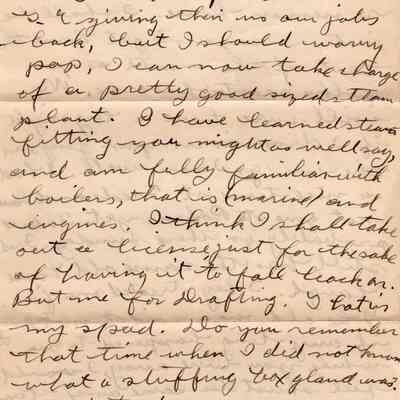 giving them us our jobs
back, but I should worry
pop, I can now take charge
of a pretty good sized steam
plant. I have learned steam
fitting you might as well say,
and am fully familiar with
boilers, that is (marine) and
engines. I think I shall take
out a license just for the sake
of having it to fall back on.
But me for Drafting. That is
my spad. Do you remember
that time when I did not know
what a stuffing box gland was.